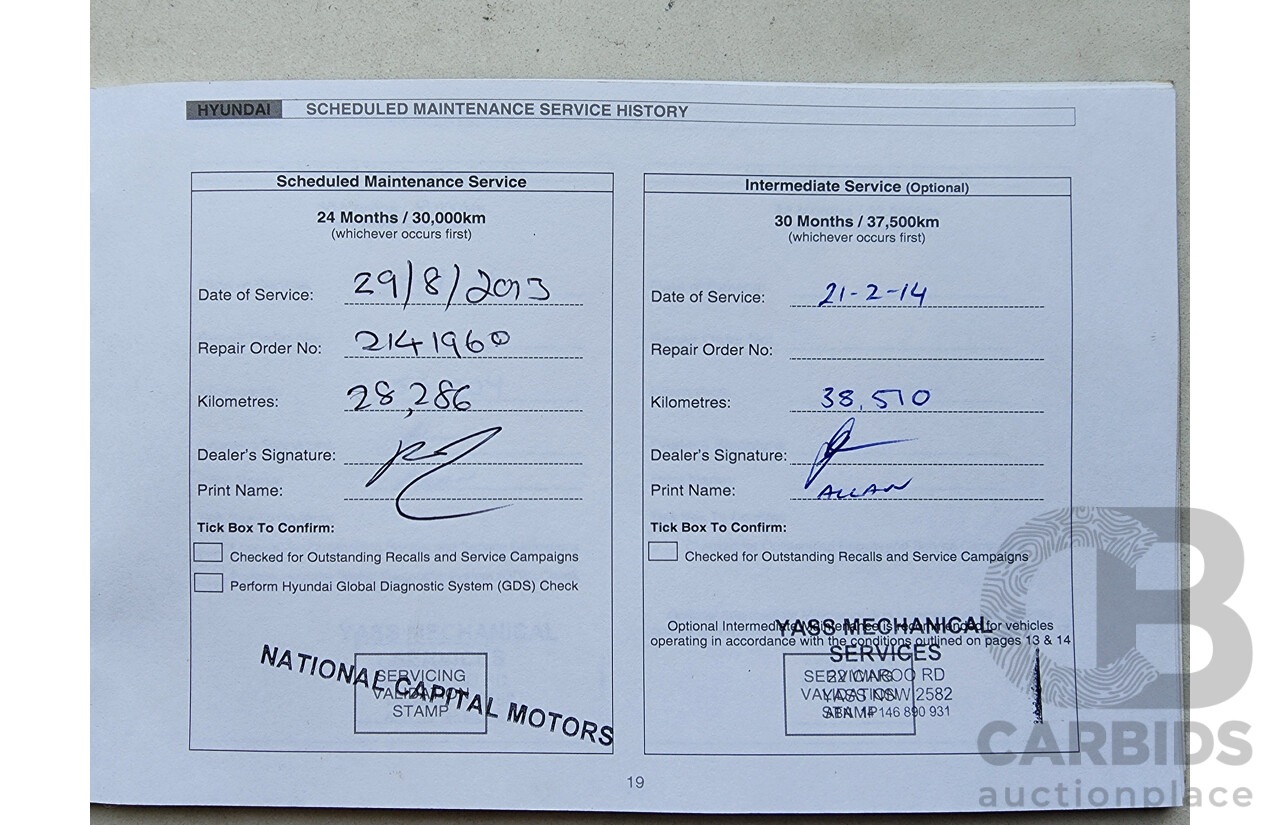 HYUNDAI SCHEDULED MAINTENANCE SERVICE HISTORY
Scheduled Maintenance Service
24 Months / 30,000km
(whichever occurs first)
Date of Service: 29/8/2013
Repair Order No: 2141960
Kilometres: 28,286
Dealer's Signature:
Print Name:
Tick Box To Confirm:
Checked for Outstanding Recalls and Service Campaigns
Perform Hyundai Global Diagnostic System (GDS) Check
SERVICING
VALIDATION
STAMP
NATIONAL CAPITAL MOTORS
Intermediate Service (Optional)
30 Months / 37,500km
(whichever occurs first)
Date of Service: 21-2-14
Repair Order No:
Kilometres: 38,510
Dealer's Signature:
Print Name: ALLAN
Tick Box To Confirm:
Checked for Outstanding Recalls and Service Campaigns
Optional Intermediate Maintenance is recommended for vehicles
operating in accordance with the conditions outlined on pages 13 & 14
SERVICING
VALIDATION
STAMP
YASS MECHANICAL
SERVICES
ROO RD
YASS NSW 2582
146 890 931
19
CARBIDS
auctionplace